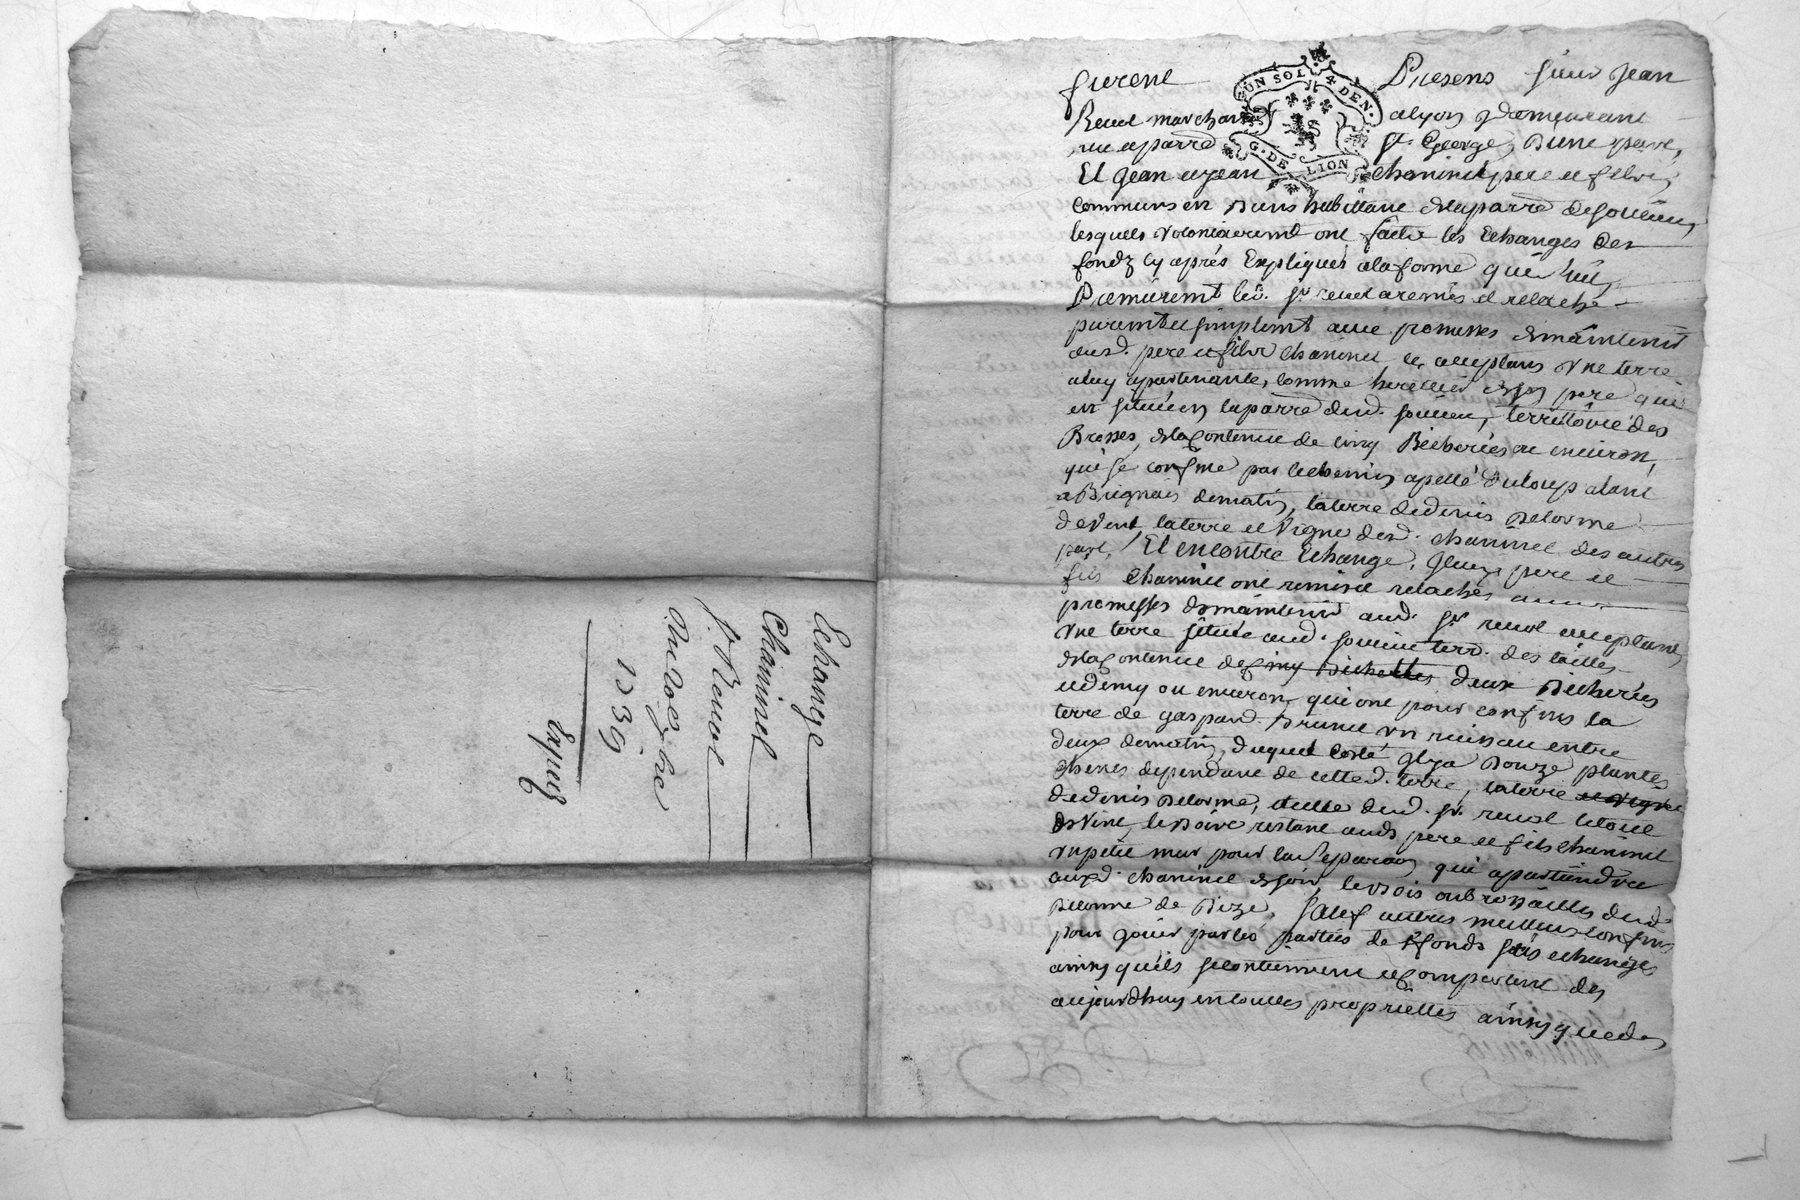 Echange
Chaminel
Sr. Renol
du 10e xbre
1739
Expiez
UN SOL 4 DEN.
G. DE LION
furent Presens sieur Jean
Renol marchand alyon y demeurant
rue eparre St. George, Dune part,
Et Jean et jean Chaminel pere et fils
communs en Biens habittant delaparre desoucieu,
lesquels volontairemt ont faitte les Echanges des
fondz cy aprés Expliqués alaforme qui suit,
Premieremt led. sr renol aremis et relaché
purement et simplemt avec promesses demaintenir
ausd. pere et fils chaminel, et acceptans Vne terre
aluy apartenante, comme heretier deson pere qui
est scituée en laparre dud. soucieu, territoire des
Brosses, delacontenue de cinq Bicherées ou environ,
qui se confine par lechemin apellé duloup alant
a Brignais dematin, laterre dedenis Delorme
devent, laterre et Vigne desd. chaminel des autres
part, Et encontre Echange, Iceux pere et
fils Chaminel ont remis et relachés avec
promesses demaintenir aud. sr renol acceptant
Vne terre scituée aud. soucieu terr. des tailles
delacontenue de cinq Bichettes deux Bicherées
et demy ou environ, qui ont pour confins la
terre de gaspard. Brunel un ruisseau entre
deux dematin, duquel costé Ilya Douze plantes
chenes dependant de cette d. terre, laterre et vigne
dedenis Delorme, et celle dud. sr. renol letout
deVent, le Boire restant auds pere et fils chaminel
un petit mur pour la separaon, qui apartiendra
auxd. chaminel desoir, lesbois oubrossailles dud.
Delorme de Bize, sauf autres meilleurs confins
pour jouir par les parties de fonds sus echangés
ainsy quils secontiennent et comportent des
aujourdhuy entoutes proprietes ainsy quede